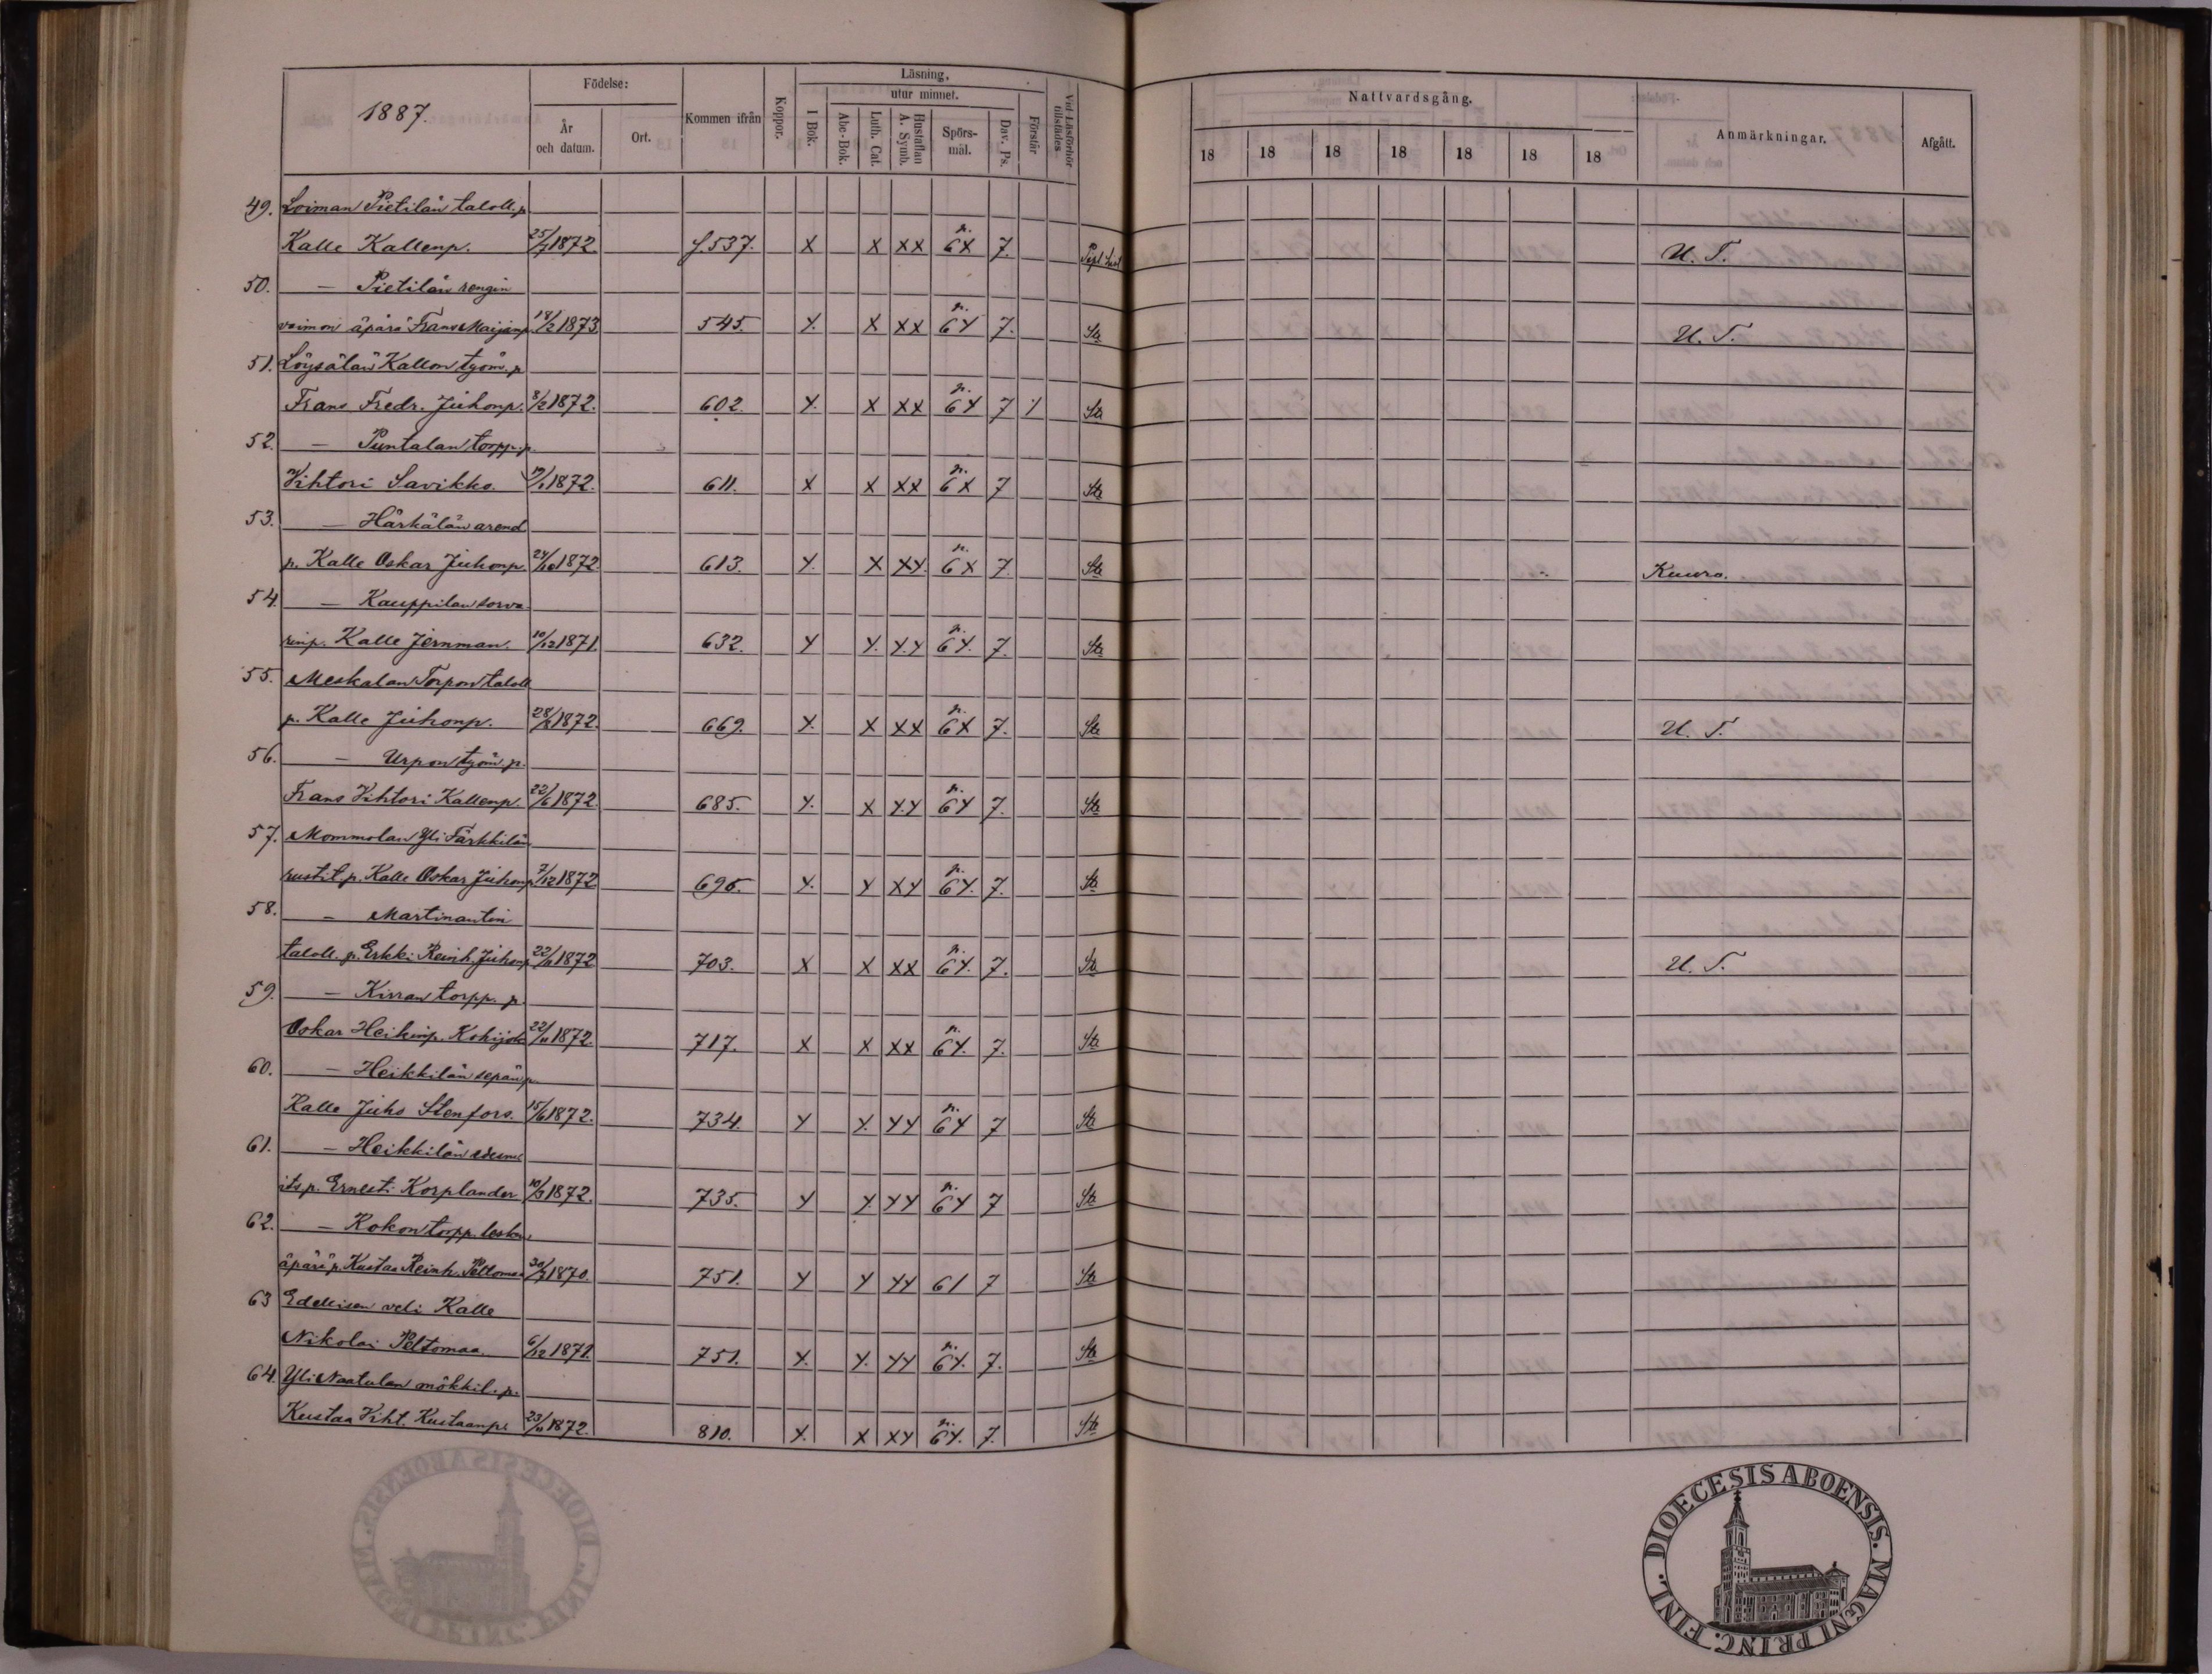 1887.
Födelse:
År och datum.
Ort.
Kommen ifrån
Koppor.
Läsning,
utur minnet.
I Bok.
Abc-Bok.
Luth. Cat.
Hustaflan A. Symb.
Spörs-mål.
Dav. Ps.
Förstår
Vid Läsförhör tillstädes
Nattvardsgång.
18 18 18 18 18 18 18
Anmärkningar.
Afgått.
49. Loiman Pietilän taloll. p.
Kalle Kallenp. 25/7 1872. f. 537. X X XX n. 6X 7. U. T.
50. — Pietilän rengin
vaimon äpärä Frans Maijanp. 18/2 1873. 545. X. X XX n. 6X 7. U. T.
51. Löysälän Kallon työm. p.
Frans Fredr. Juhonp. 8/2 1872. 602. X. X XX n. 6X 7
52. — Puntalan torpp. p.
Vihtori Savikko. 1872. 611. X X XX n. 6X 7
53. — Härkälän arend.
p. Kalle Oskar Juhonp. 24/10 1872. 613. X. X XX. n. 6X 7. Kuuro.
54. — Kauppilan sorva
rinp. Kalle Jernman. 10/12 1871. 632. X X. X.X n. 6X. 7.
55. Meskalan Torpon taloll.
p. Kalle Juhonp. 1872. 669. X. X XX n. 6X 7. U. T.
56. — Urpon työm. p.
Frans Vihtori Kallenp. 22/6 1872. 685. X. X X.X n. 6X 7.
57. Mommolan Yli Tärkkilän
rustit. p. Kalle Oskar Juhonp. 7/12 1872 695. X. X XX n. 6X. 7.
58. — Martinantin
taloll. p. Erkki Reinh. Juhonp. 1872 703. X X XX n. 6X. 7. U. T.
59. — Kirran torpp. p.
Oskar Heikinp. Kohijoki 22/11 1872. 717. X X XX n. 6X. 7.
60. — Heikkilän sepän p.
Kalle Juho Stenfors. 15/6 1872. 734. X X. XX n. 6X 7
61. — Heikkilän
its p. Ernesti Korplander 10/3 1872. 735. X X. XX n. 6X 7
62. — Kokon torpp. lesken
äpärä p. Kustaa Reinh. Peltomaa 1870. 751. X X XX 61 7
63 Edellisen veli Kalle
Nikolai Peltomaa. 6/12 1871. 751. X. X. XX n. 6X. 7.
64. Yli Naatulan mökkil. p.
Kustaa Viht. Kustaanp. 1872. 810. X. X XX n. 6X. 7.
DIOECESIS ABOENSIS. MAGNI PRINC. FINL.